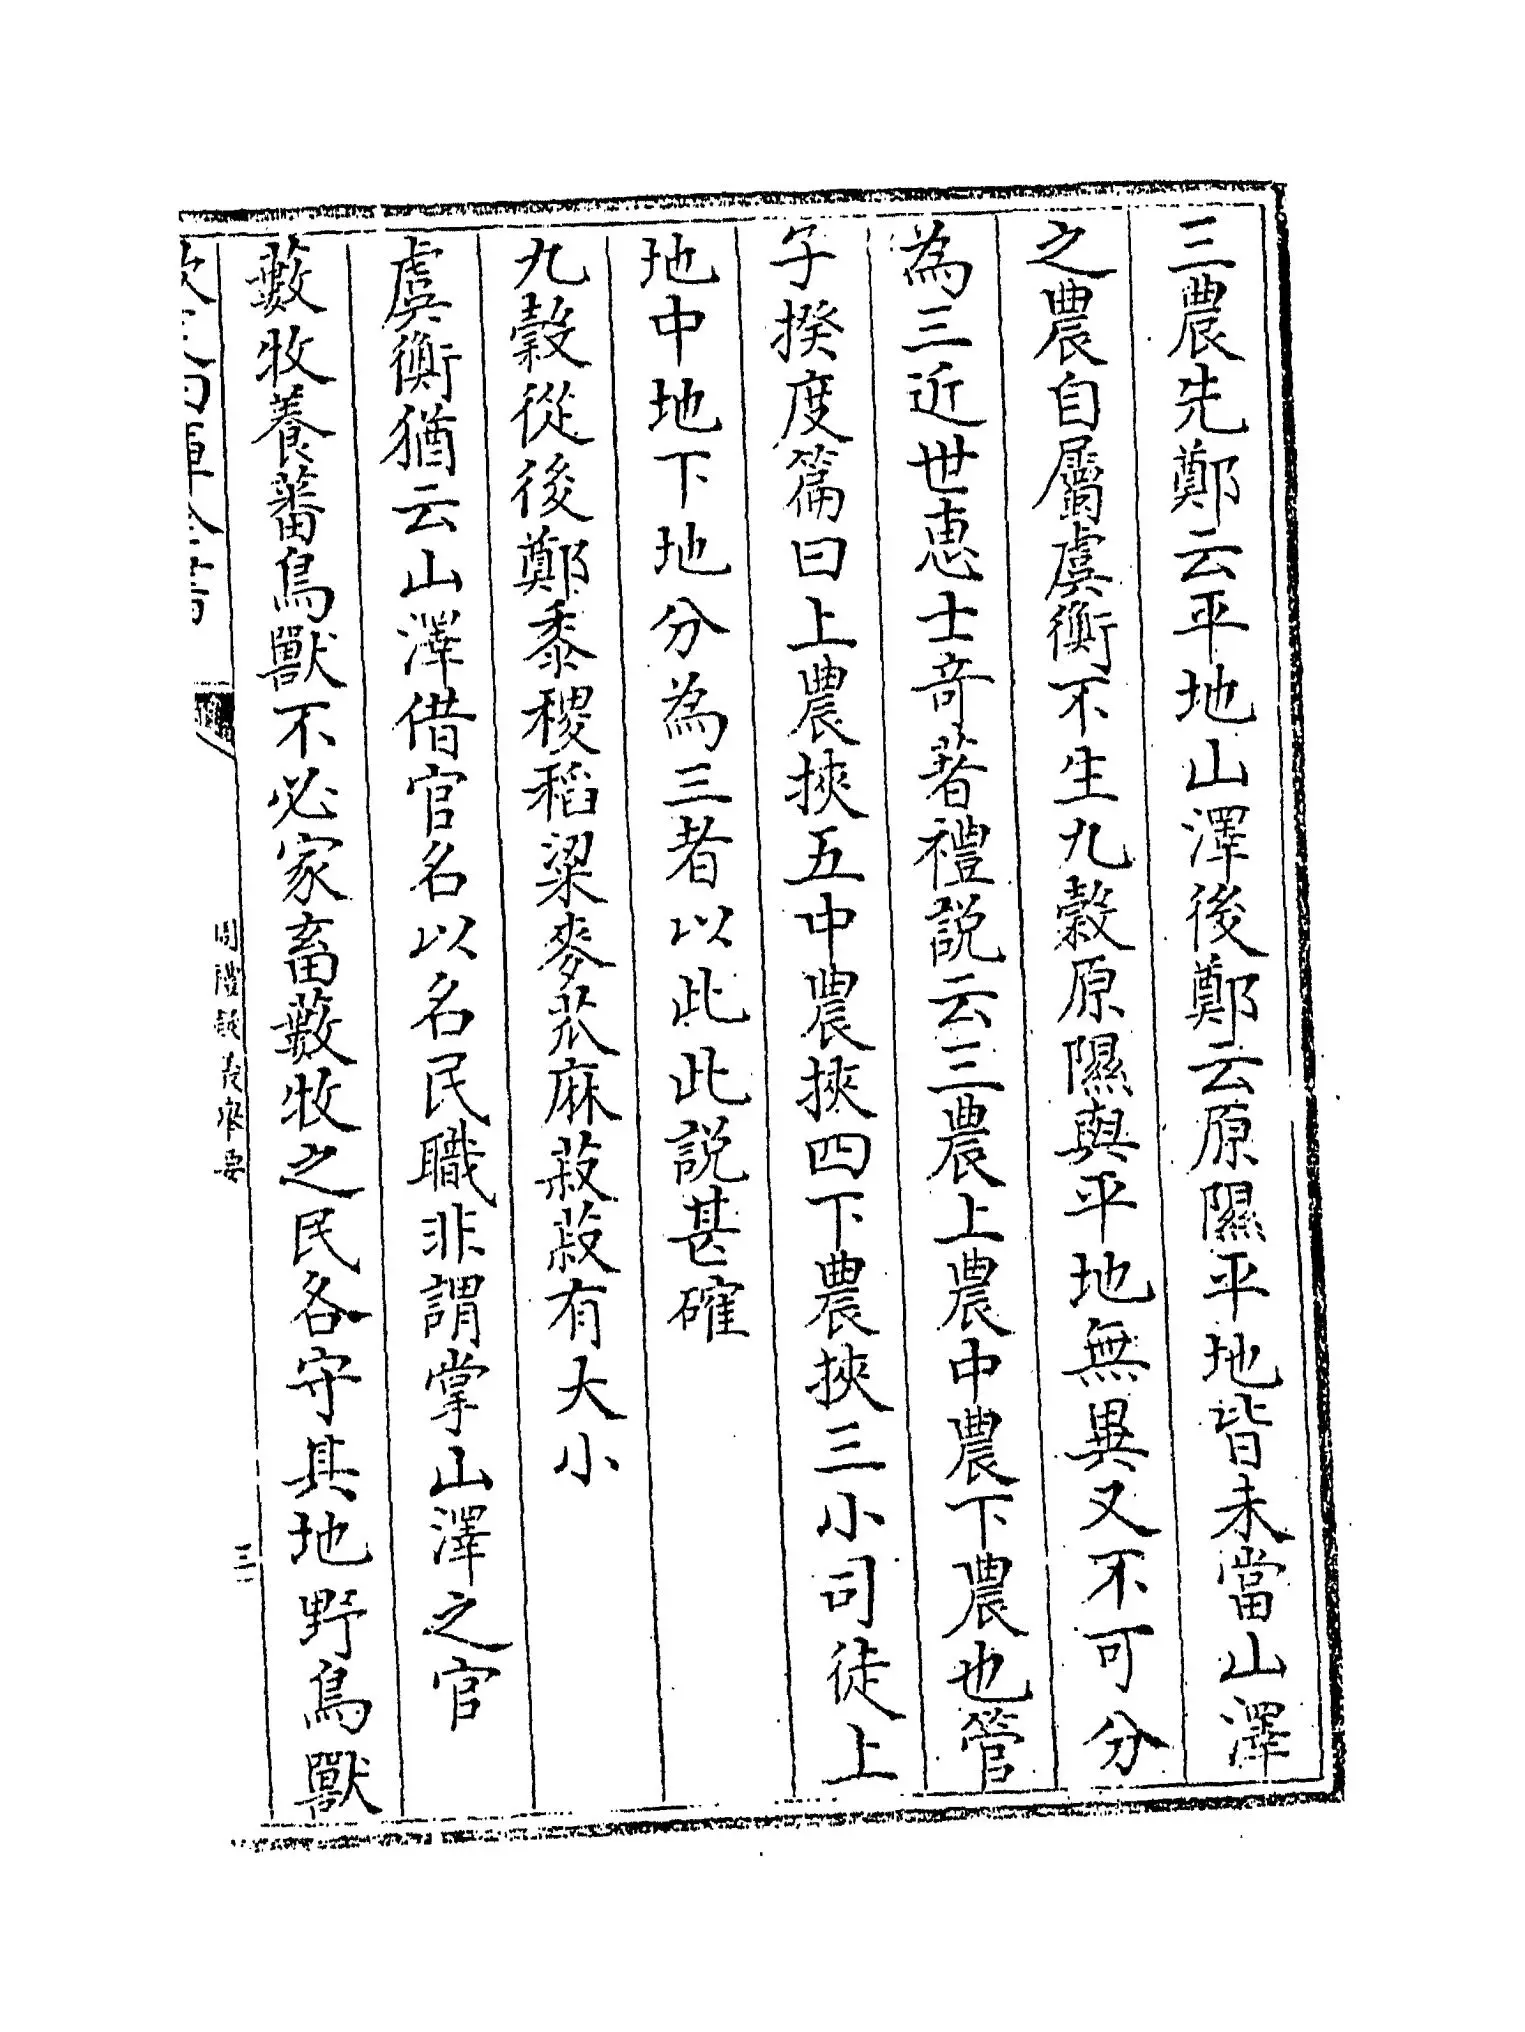 三農先鄭云平地山澤後鄭云原隰平地皆未當山澤
之農自屬虞衡不生九榖原隰與平地無異又不可分
為三近世惠士竒著禮説云三農上農中農下農也管
子揆度篇曰上農挾五中農挾四下農挾三小司徒上
地中地下地分為三者以此此説甚確
九榖從後鄭黍稷稻粱麥苽麻菽菽有大小
虞衡猶云山澤借官名以名民職非謂掌山澤之官
藪牧養蕃鳥獸不必家畜藪牧之民各守其地野鳥獸
欽定四庫全書
周禮疑義舉要
三